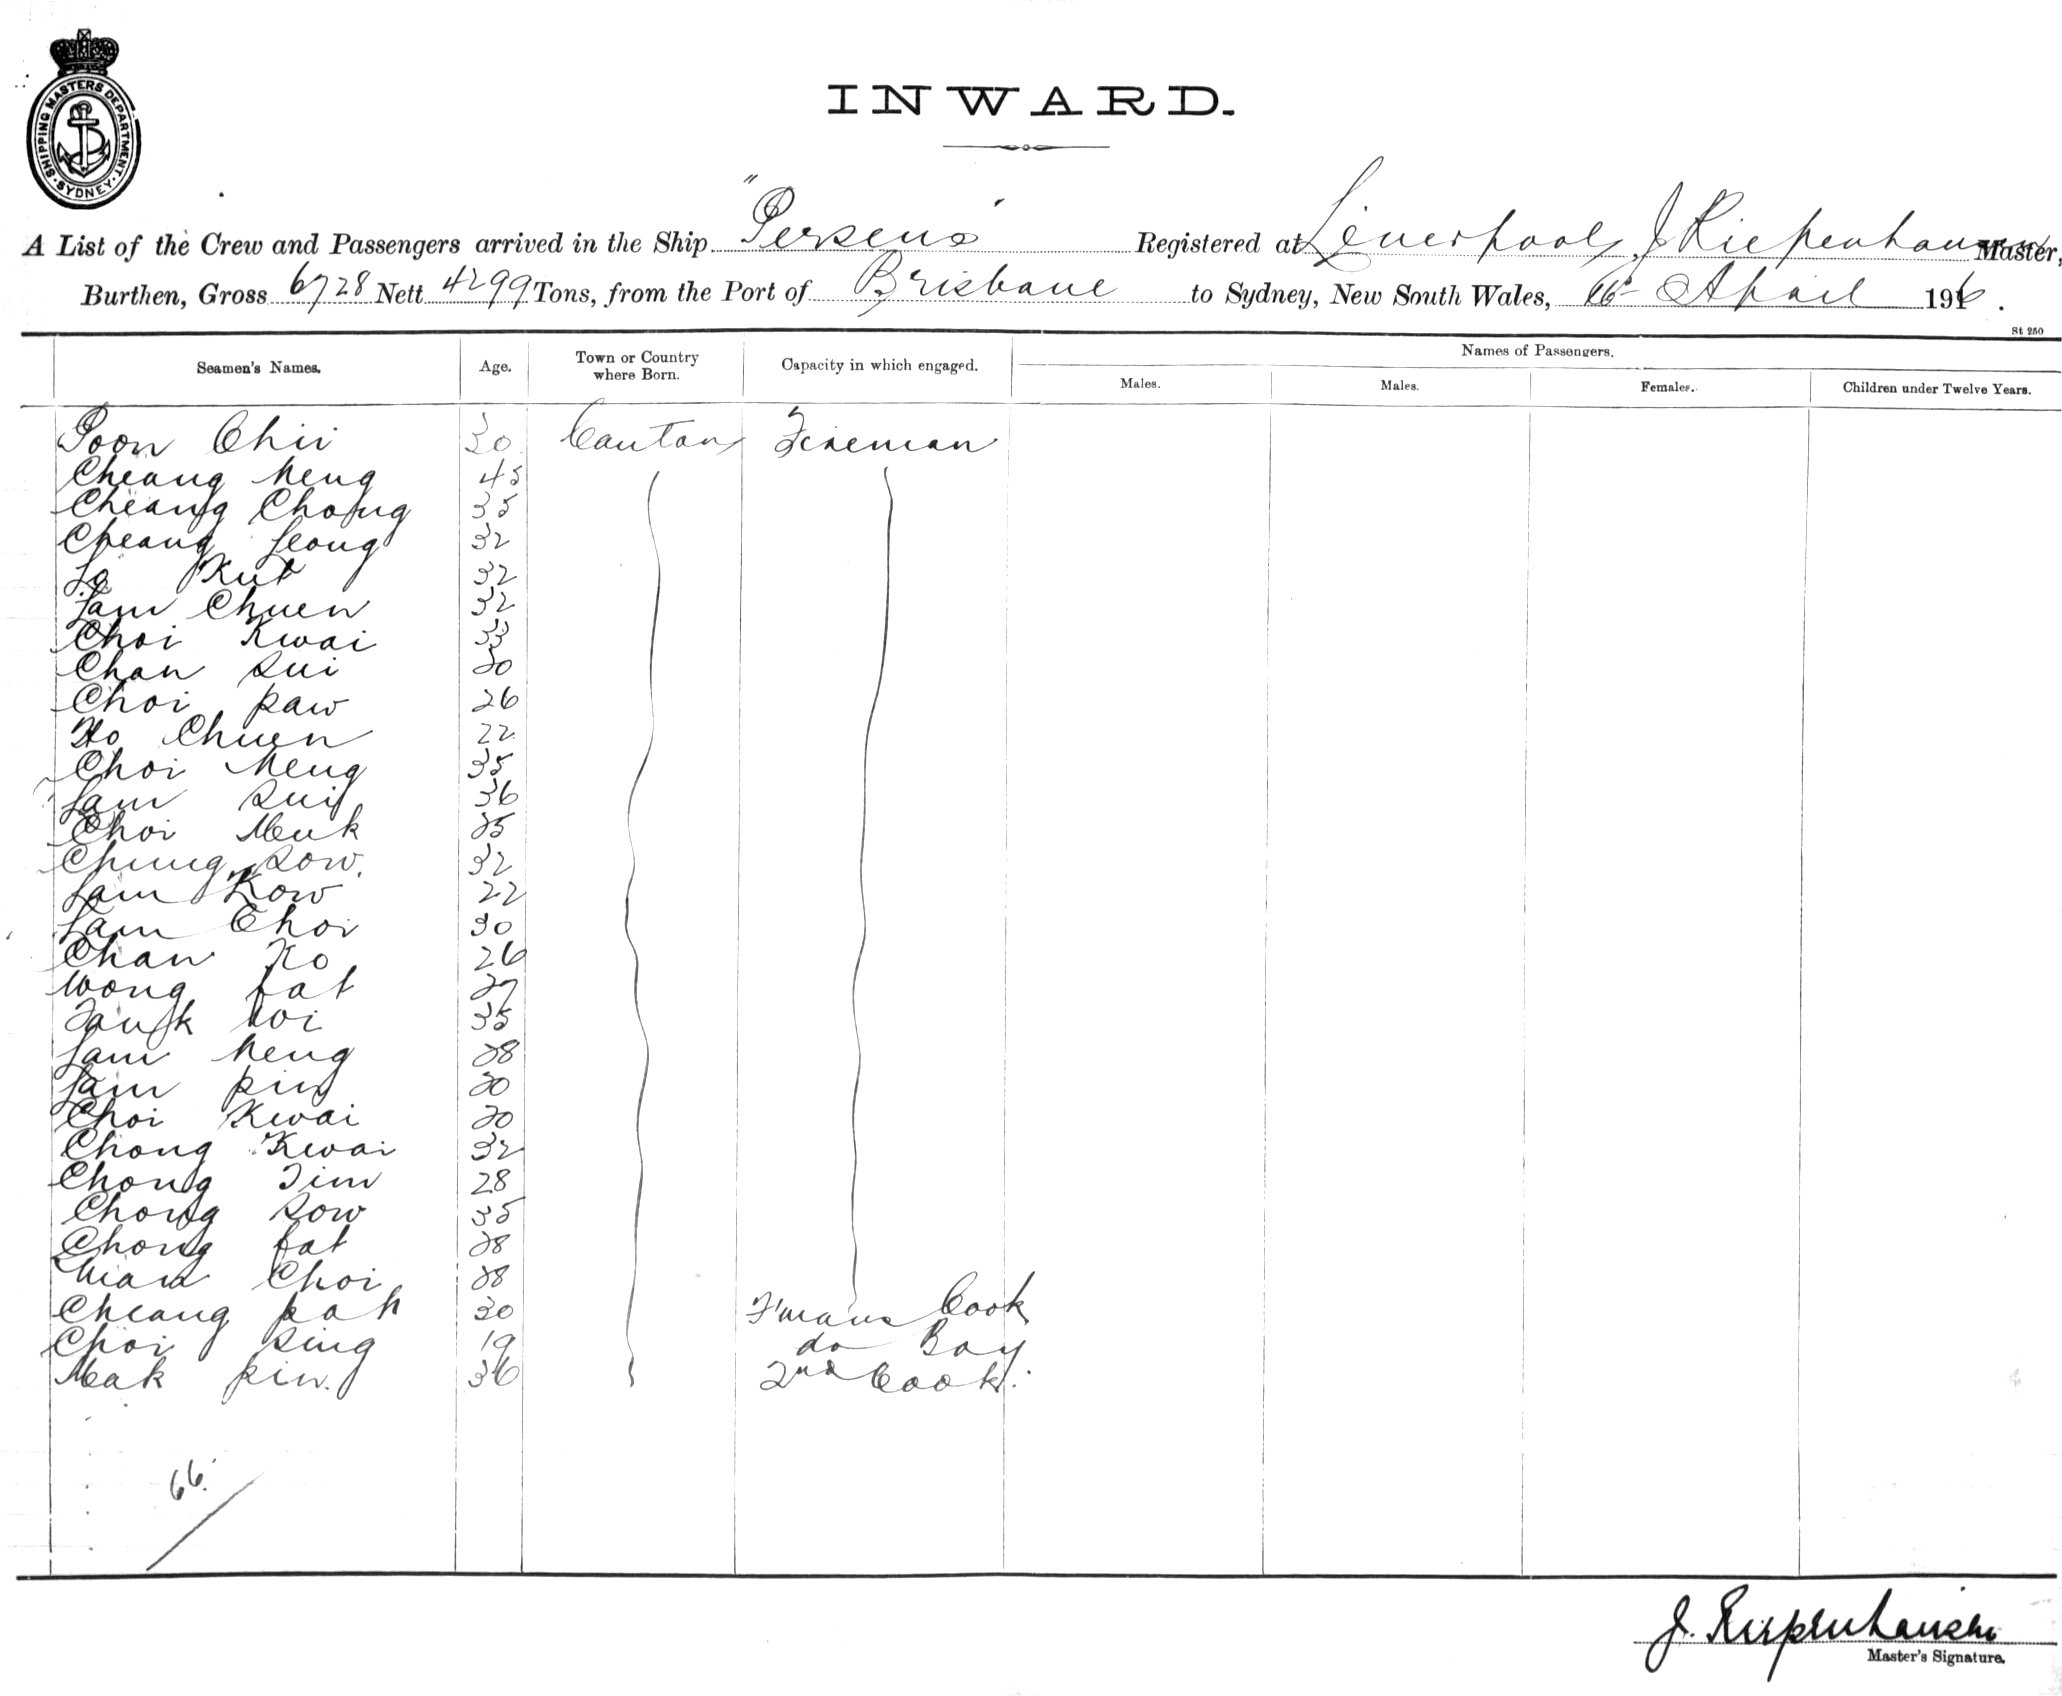 SHIPPING MASTERS DEPARTMENT. SYDNEY.
INWARD.
A List of the Crew and Passengers arrived in the Ship "Perseus" Registered at Liverpool, J Riepenhausen Master,
Burthen, Gross 6728 Nett 4299 Tons, from the Port of Brisbane to Sydney, New South Wales, 16th April 1916.
St 250
Seamen's Names. Age. Town or Country where Born. Capacity in which engaged. Names of Passengers.
Males. Males. Females. Children under Twelve Years.
Poon Chii 30 Canton Fireman
Cheang Meng 45
Cheang Chong 35
Cheang Leong 32
Lo Kut 32
Lam Chuen 32
Choi Kwai 33
Chan Sui 20
Choi paw 26
Ho Chuen 22
Choi Meng 35
Lam Sui 36
Choi Muk 25
Chung Sow. 32
Lam Kow 22
Lam Choi 30
Chan Ho 26
Wong fat 27
Fauk loi 35
Lam Meng 28
Lam pin 20
Choi Kwai 20
Chong Kwai 32
Chong Tim 28
Chong Sow 35
Chong fat 28
Man Choi 28
Cheang pak 30 F'mans Cook
Choi Sing 19 do Boy
Mak pin. 36 2nd Cook.
66.
J. Riepenhausen
Master's Signature.